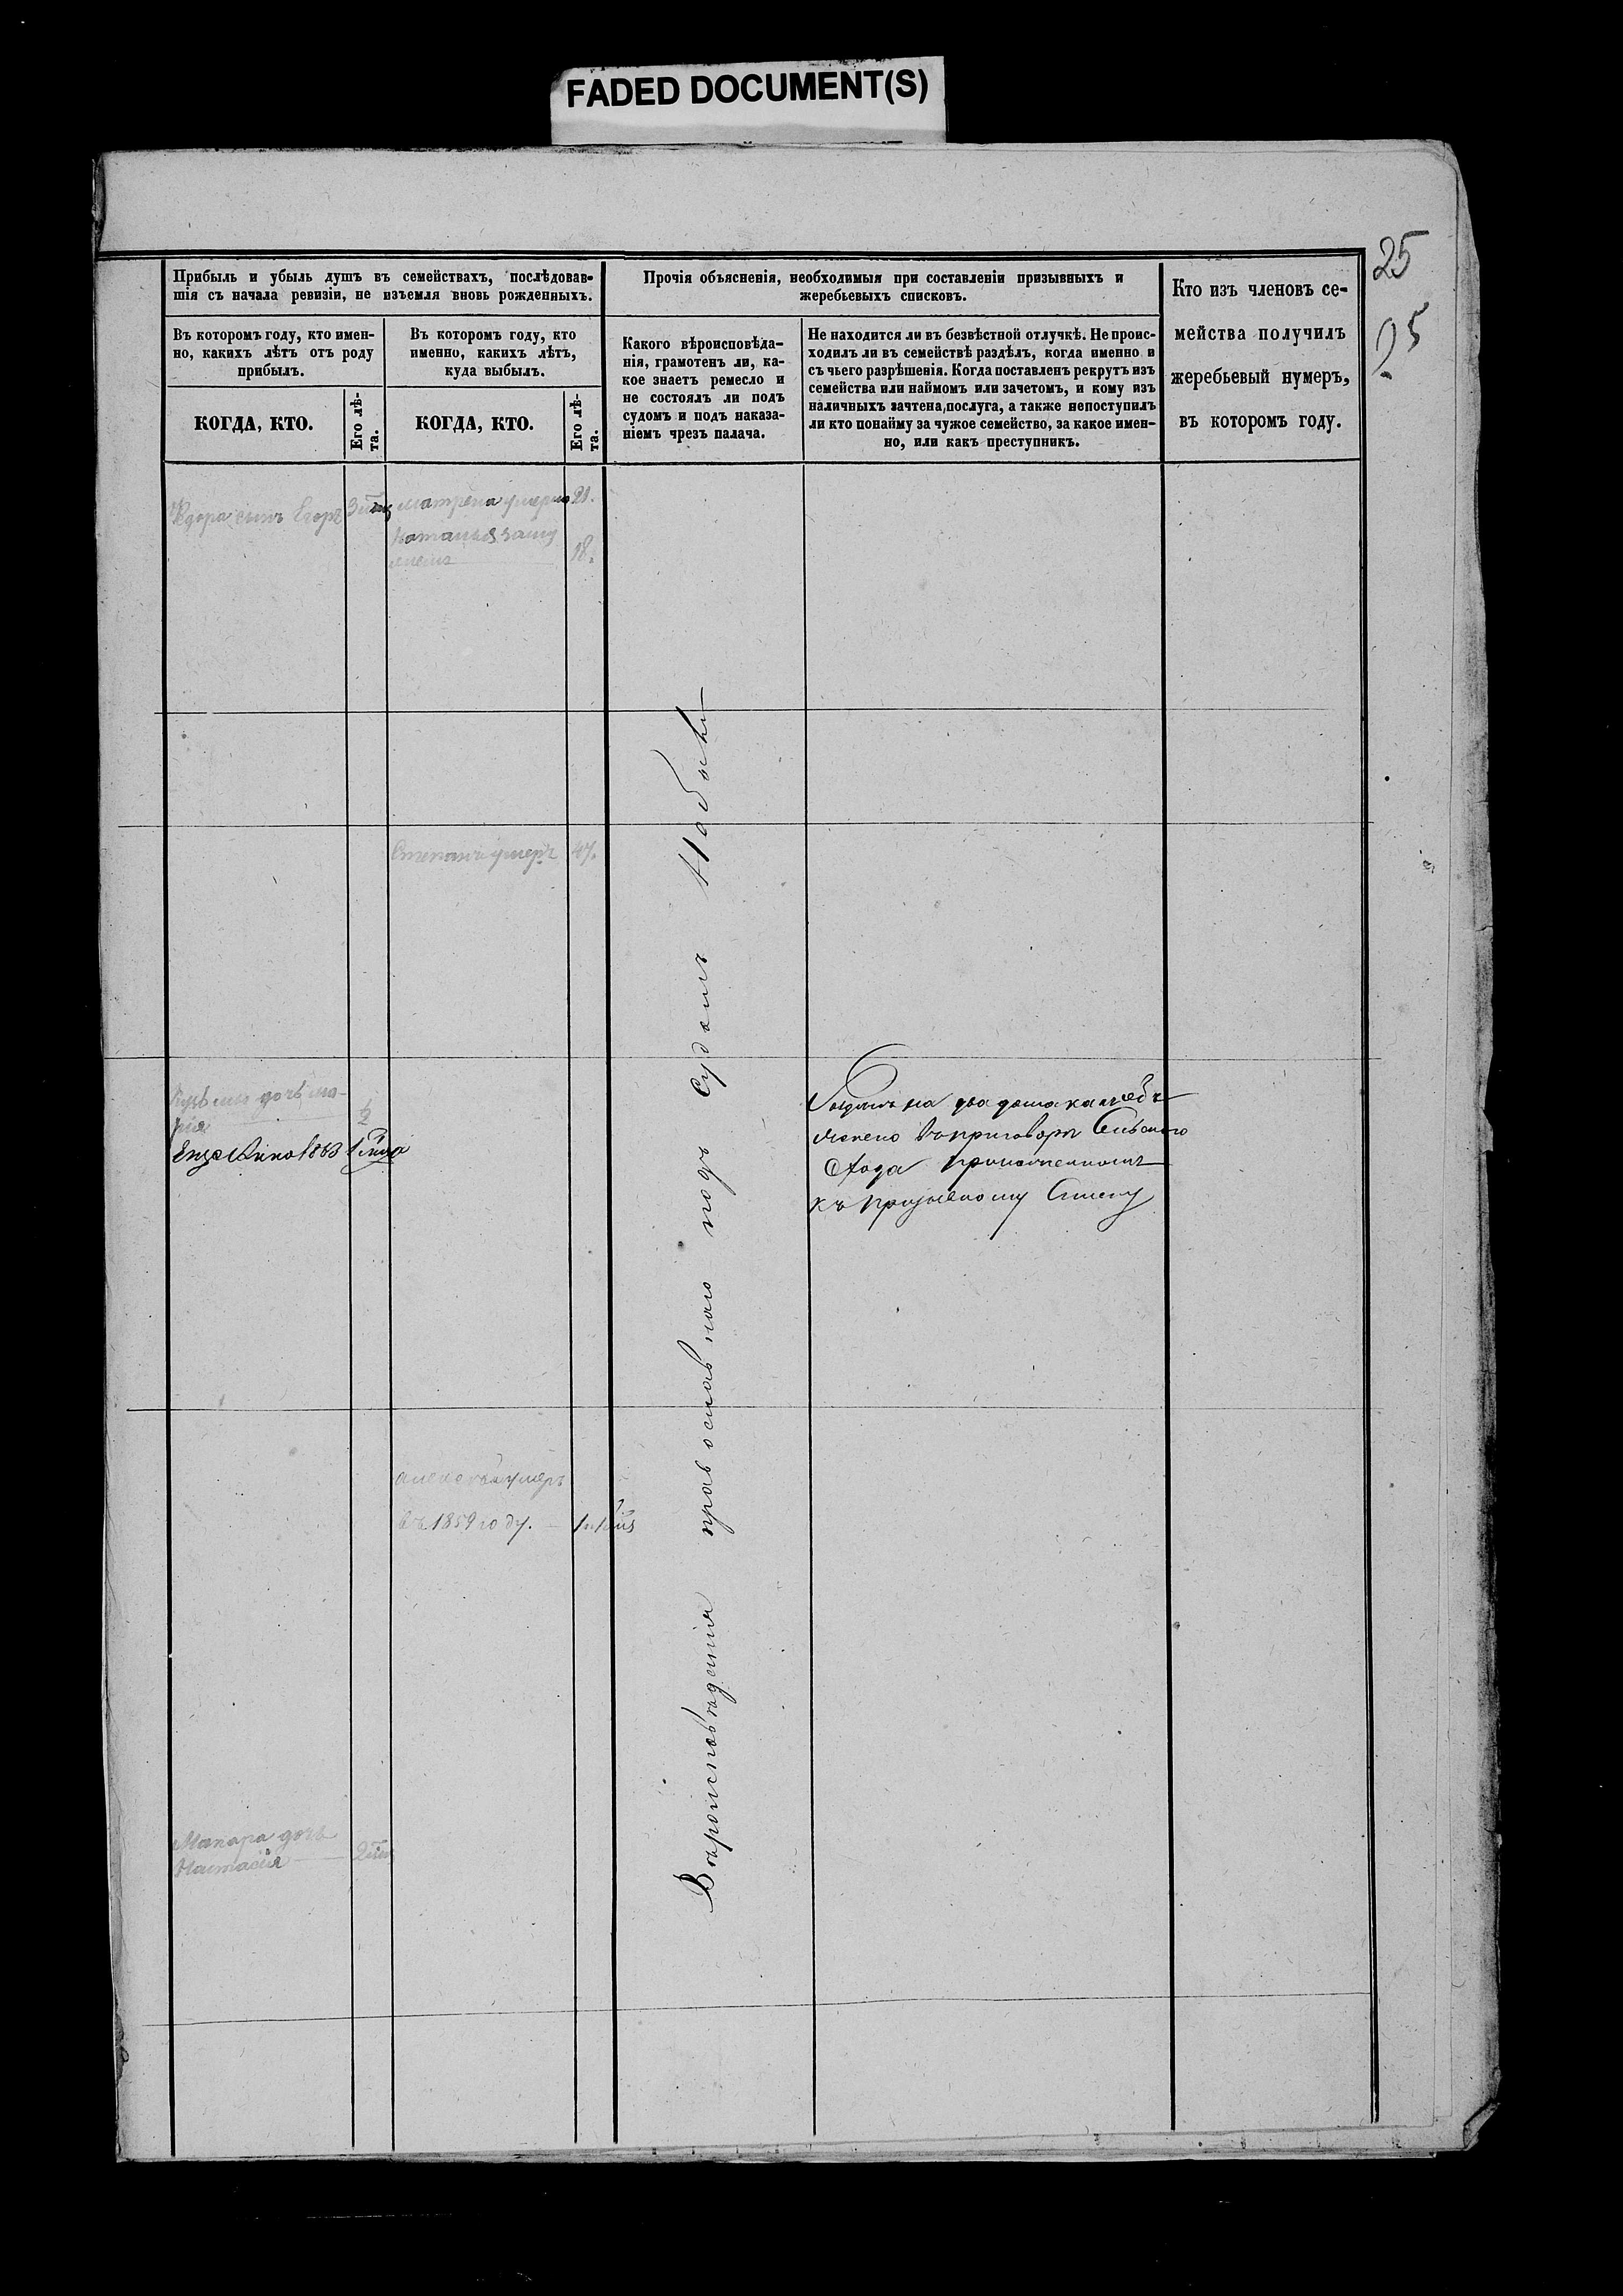 FADED DOCUMENT(S)
25
25
Прибыль и убыль душъ въ семействахъ, послѣдовав-
шія съ начала ревизіи, не изъемля вновь рожденныхъ.
Прочія объясненія, необходимыя при составленіи призывныхъ и
жеребьевыхъ списковъ.
Кто изъ членовъ се-
мейства получилъ
жеребьевый нумеръ,
въ которомъ году.
Въ которомъ году, кто имен-
но, какихъ лѣтъ отъ роду
прибылъ.
Въ которомъ году, кто
именно, какихъ лѣтъ,
куда выбылъ.
Какого вѣроисповѣда-
нія, грамотенъ ли, ка-
кое знаетъ ремесло и
не состоялъ ли подъ
судомъ и подъ наказа-
ніемъ чрезъ палача.
Не находится ли въ безвѣстной отлучкѣ. Не проис-
ходилъ ли въ семействѣ раздѣлъ, когда именно и
съ чьего разрѣшенія. Когда поставленъ рекрутъ изъ
семейства или наймомъ или зачетомъ, и кому изъ
наличныхъ зачтена послуга, а также непоступилъ
ли кто понайму за чужое семейство, за какое имен-
но, или какъ преступникъ.
КОГДА, КТО.
Его лѣ-
та.
КОГДА, КТО.
Его лѣ-
та.
Ѳедора сынъ Егоръ
Матрена умерла 21.
Наталья заму
жемъ 18.
Степанъ умеръ 47.
Кузьмы дочь Ма-
рія ½
Еще Анна 1863 1 года
на два дома какъ объ
яснено въ приговоре Сельскаго
Схода приложенномъ
къ призывному Списку
Алексѣй умеръ
въ 1859 году.
Макара дочь
Настасія
Вѣроисповѣданія православнаго подъ Судомъ Небыли